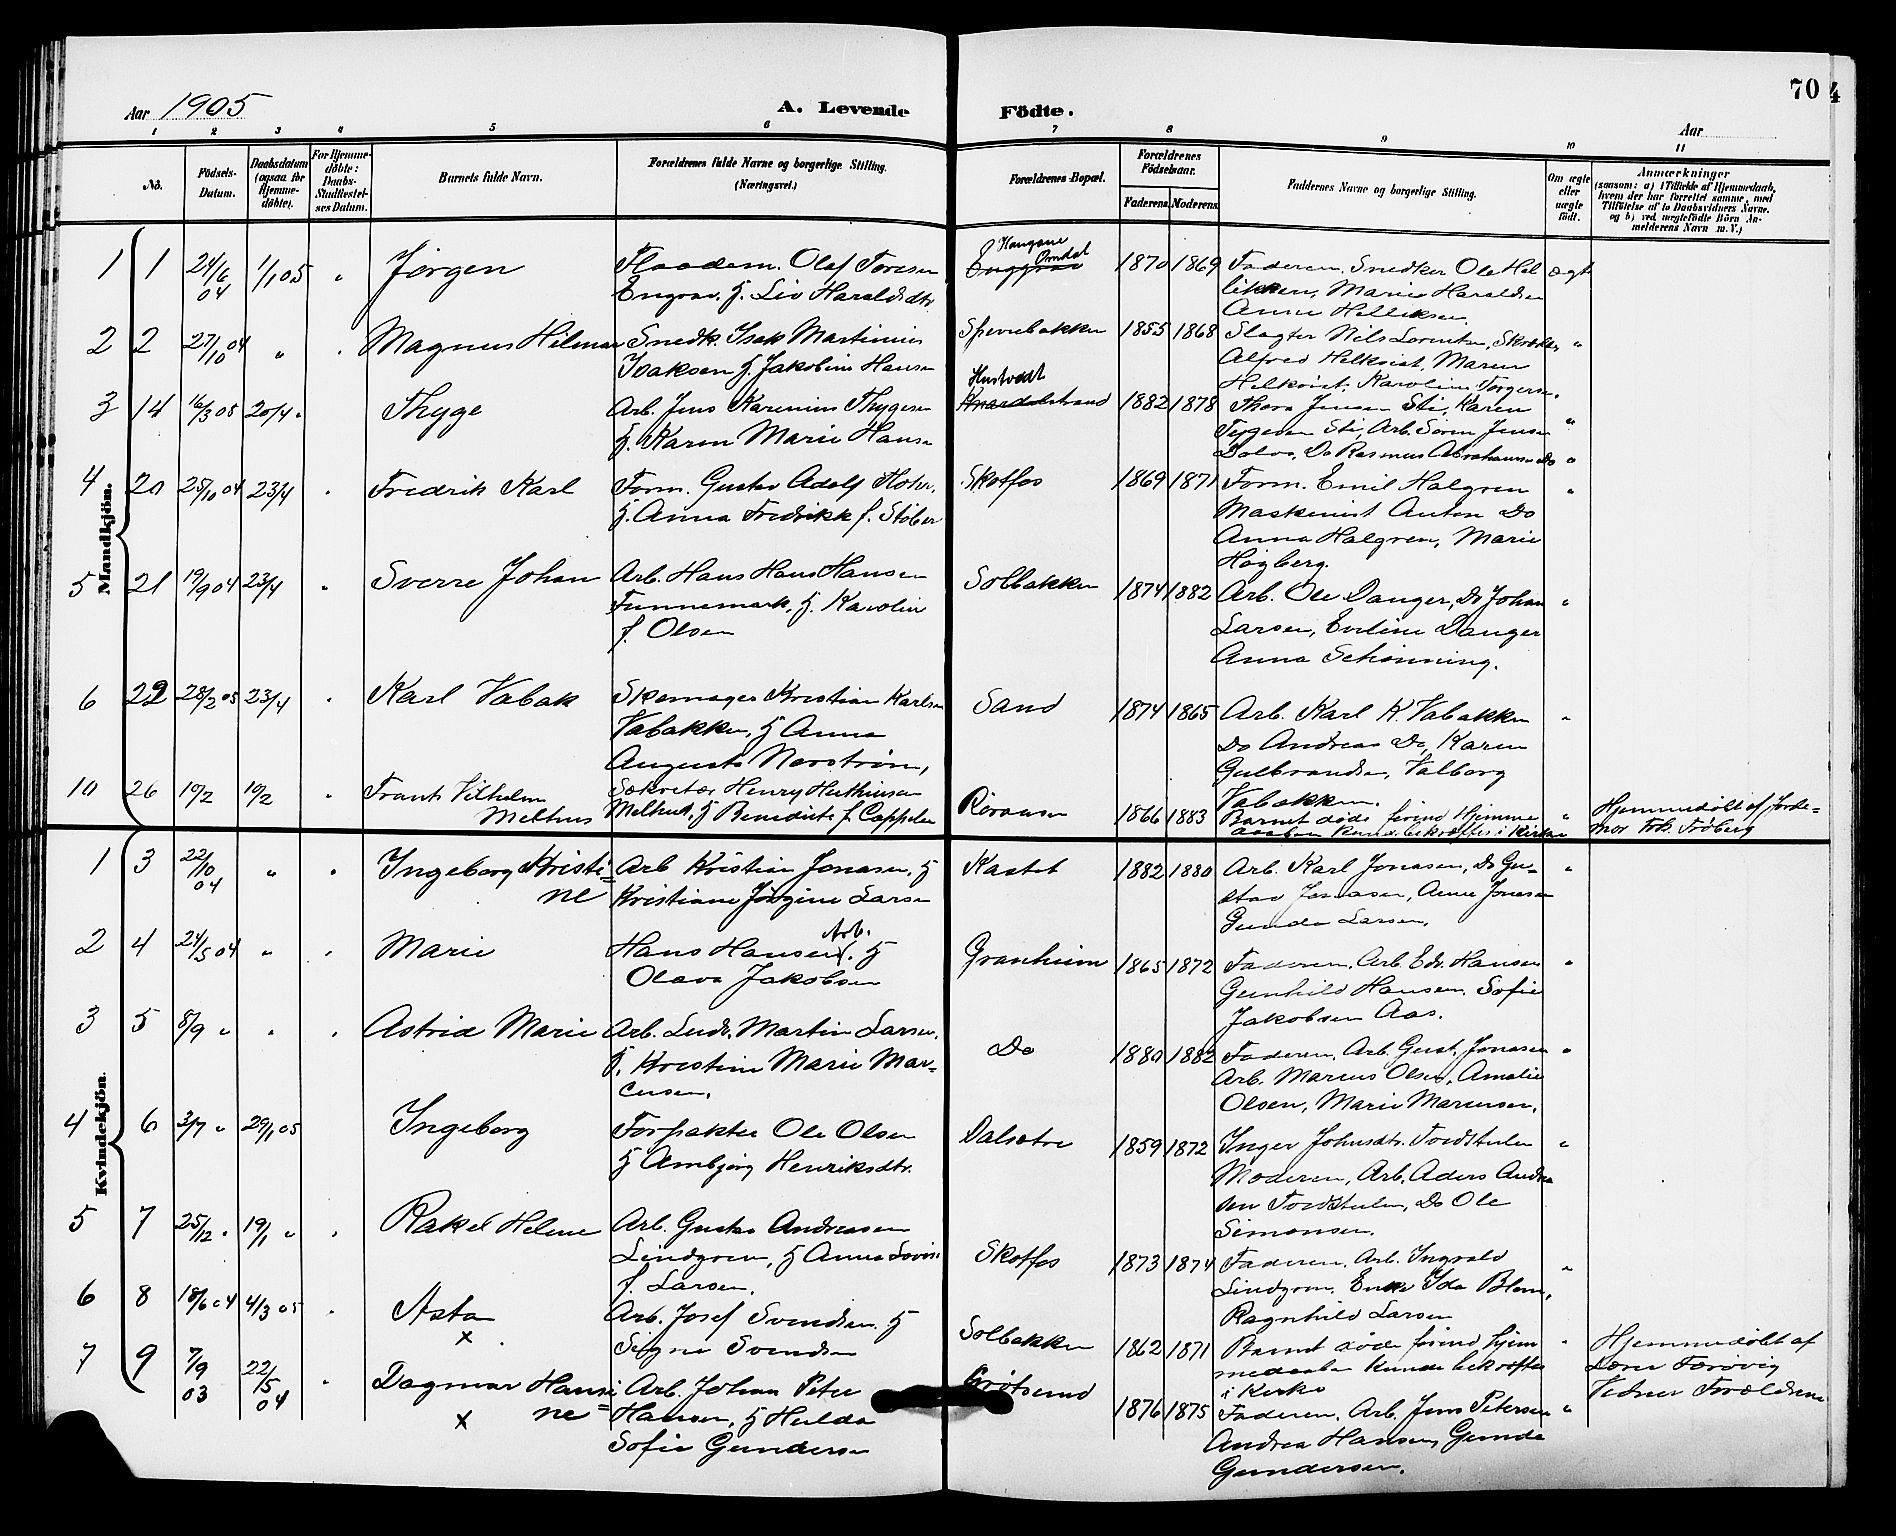 70
Aar 1905
A. Levende Födte.
Aar
1 2 3 4 5 6 7 8 9 10 11
No.
Födsels-Datum.
Daabsdatum (ogsaa for Hjemme-döbte).
For Hjemme-döbte: Daabs-Stadfæstel-ses Datum.
Barnets fulde Navn.
Forældrenes fulde Navne og borgerlige Stilling. (Næringsvei.)
Forældrenes Bopæl.
Forældrenes Födselsaar.
Faderens. Moderens.
Faddernes Navne og borgerlige Stilling.
Om ægte eller uægte födt.
Anmærkninger
(saasom: a) i Tilfælde af Hjemmedaab, hvem der har forrettet samme, med Tilföielse af to Daabsvidners Navne, og b) ved uægtefödte Börn Anmelderens Navn m. V.)
Mandkjön.
1 1 24/6 04 1/1 05 " Jørgen
Olaf Toresen
Engrav. H. Liv Haraldsdtr
Omdal
1870 1869 Faderen, Snedker Ole Hel
Marie Haraldsen
Anne Helliksen
ægt
2 2 27/10 04 " " Magnus Hilmar
Snedk. Isak Martinius
Isaksen H. Jakobine Hansen
1855 1868 Slagter Nils Lorentsen,
Alfred Helkvist, Maren
Helkvist, Karoline Torgersen
"
3 14 16/3 05 20/4 " Thyge
Arb. Jens Karenius Thygesen
H. Karen Marie Hansen
Hustvedt
1882 1878 Thora Jensen Sti, Karen
Tygesen Sti, Arb. Søren Jensen
Do Rasmus Abrahamsen Do
"
4 20 25/10 04 23/4 " Fredrik Karl
Form. Gustav Adolf
H. Anna Fredrikke f. Støber
Skotfos
1869 1871 Form. Emil Halgren
Maskinist Anton Do
Anna Halgren, Marie
Høgberg.
"
5 21 19/9 04 23/4 " Sverre Johan
Arb. Hans Hans Hansen
Tunnemark, H. Karolin
f. Olsen
Solbakken
1874 1882 Arb. Ole Danger, Do Johan
Larsen, Eveline Danger
Anna Schönning.
"
6 22 28/2 05 23/4 " Karl Vabak
Skomager Kristian Karlsen
Vabakken, H Anna
Augusta Norstrøm,
Sand
1874 1865 Arb. Karl K. Vabakken
Do Andreas Do, Karen
Gulbrandsen, Valborg
Vabakken.
"
10 26 19/2 19/2 " Frants Vilhelm
Melhus
Sekretær Henry
Melhus, H Benedicte f. Cappelen
1866 1883 Barnet døde førend Hjemme
daaben kunde bekræftes i Kirken
"
Hjemmedøbt af Jorde-
mor Frk. Frøberg
Kvindekjön.
1 3 22/10 04 " " Ingeborg Kristi-
ne
Arb Kristian Jonasen, H
Kristiane Jørgine Larsen
Kastet
1882 1880 Arb. Karl Jonasen, Do Gu-
stav Jonasen, Anne Jonasen
Gunda Larsen.
"
2 4 24/5 04 " " Marie
Hans Hansen, Arb. H
Olava Jakobsen
Granheim
1865 1872 Faderen, Arb. Edv. Hansen
Gunhild Hansen, Sofie
Jakobsen Aas.
"
3 5 8/9 " " " Astrid Marie
Arb. Ludv. Martin Larsen,
H. Kristine Marie Mar-
cusen.
Do
1880 1882 Faderen, Arb. Gust. Jonasen
Arb. Marius Olsen, Amalie
Olsen, Marie Marensen.
"
4 6 3/7 " 29/1 05 Ingeborg
Forpakter Ole Olsen
H Ambjørg Henriksdtr.
Dalsetre
1859 1872 Inger Johnsdtr.
Moderen, Arb. Aders Andre
Do Ole
Simonsen.
"
5 7 25/12 " 19/1 " " Rakel Helene
Arb. Gustav Andreasen
Lindgren, H Anna Lovise
f. Larsen.
Skotfos
1873 1874 Faderen, Arb. Ingvald
Lindgren, Enke Ida Blom,
Ragnhild Larsen
"
6 8 18/6 04 4/3 05 " Asta
x
Arb. Josef Svendsen, H
Signe Svendsen
Solbakken
1862 1871 Barnet døde førend hjem
medaaben kunde bekræftes
i Kirke
"
Hjemmedøbt af
Færøvig
Vidner Forældrene
7 9 7/9 03 22/5 04 " Dagmar Hansi-
ne
x
Arb. Johan Peter
Hansen, H Hulda
Sofie Gundersen
Grøtsund
1876 1875 Faderen, Arb. Jens Petersen
Andrea Hansen, Gunda
Gundersen.
"